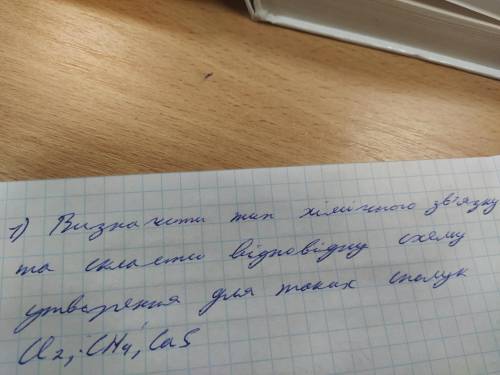 1) Визначити тип хімічного зв'язку
та скласти відповідну схему
утворення для таких сполук
Cl2, CH4, CaS